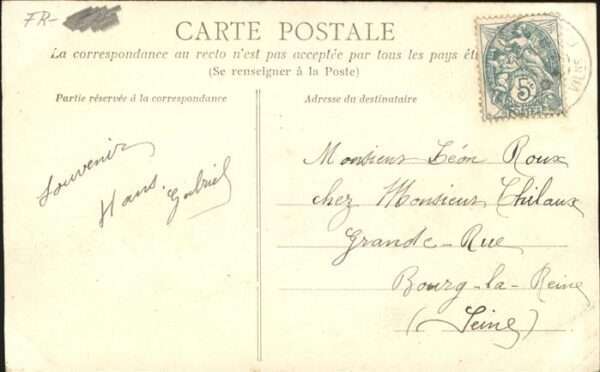 FR-
CARTE POSTALE
La correspondance au recto n'est pas acceptée par tous les pays
(Se renseigner à la Poste)
Partie réservée à la correspondance
Adresse du destinataire
5c
Souvenir
Hans. Gabriel
Monsieur Léon Roux
chez Monsieur Thilaux
Grande-Rue
Bourg-la-Reine
(Seine)